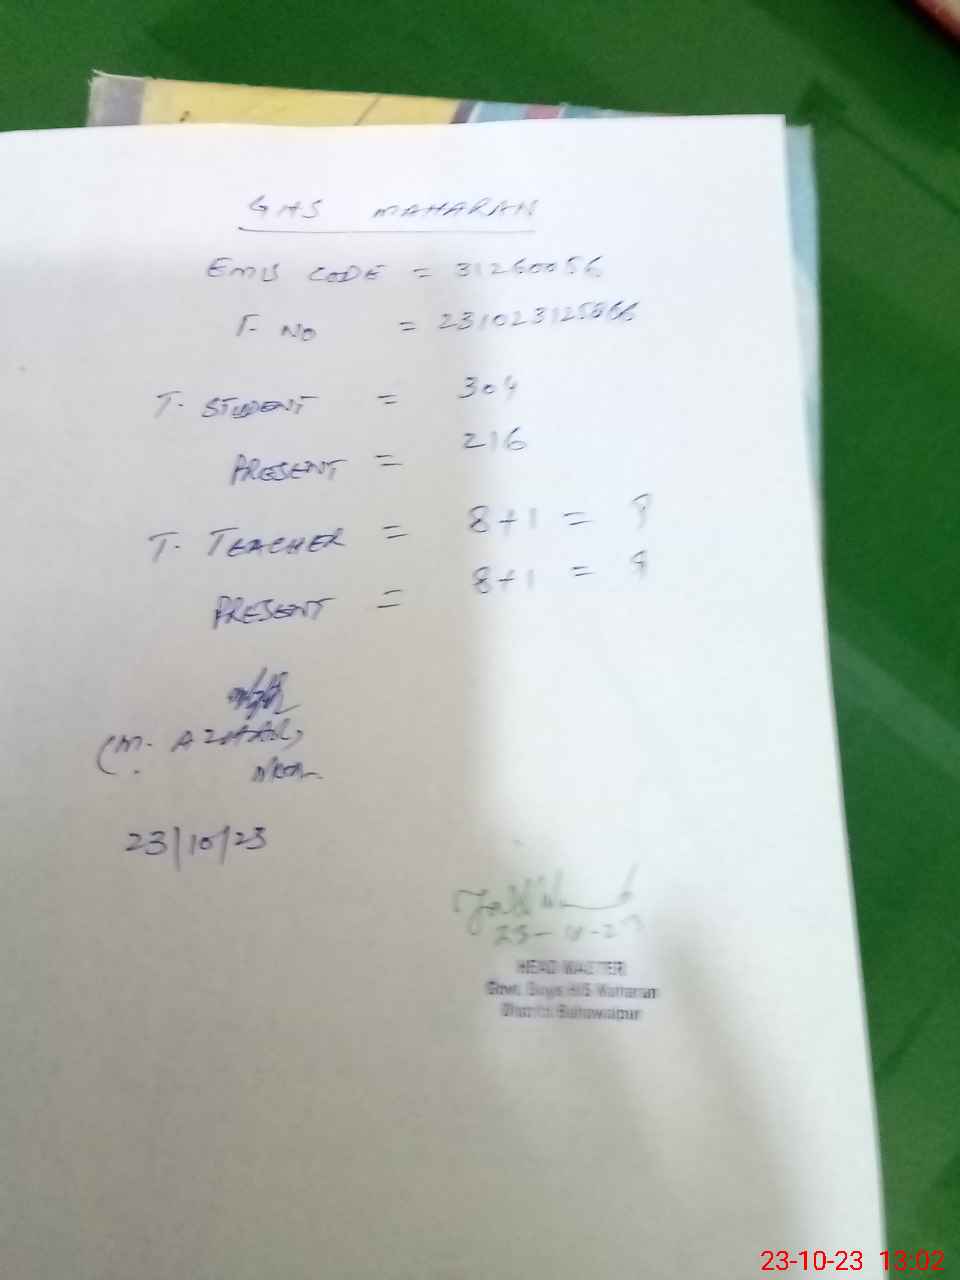 GHS MAHARAN
EMIS CODE = 31260056
F. NO = 231023125866
T. STUDENT = 304
PRESENT = 216
T. TEACHER = 8+1 = 9
PRESENT = 8+1 = 9
(M. AZHAR)
23/10/23
HEAD MASTER
Govt. Boys H/S Maharan
District Bahawalpur
23-10-23 13:02